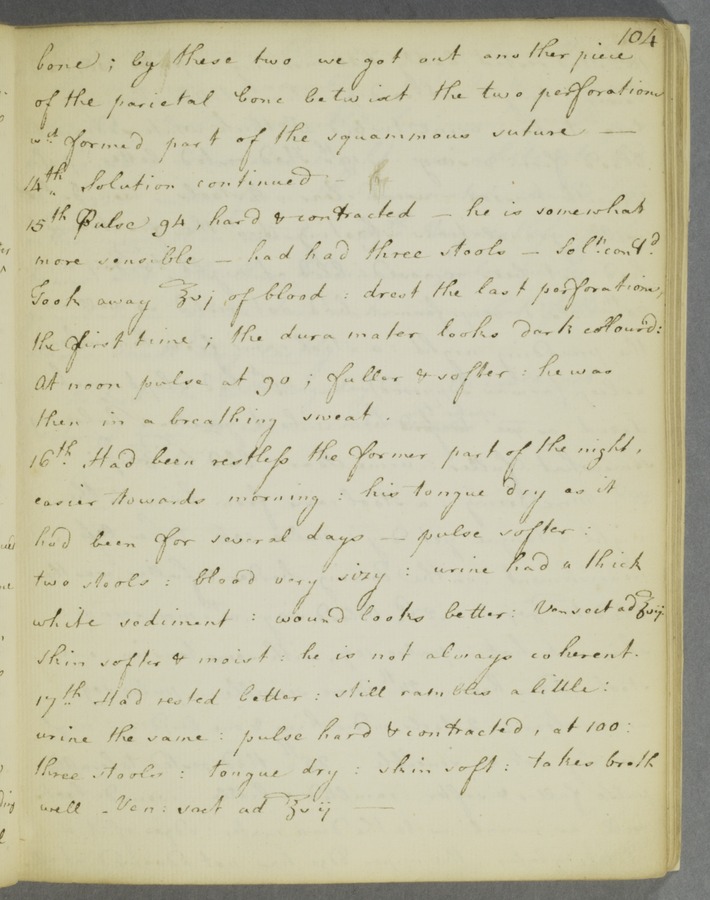 104
bone ; by these two we got out another piece
of the parietal bone betwixt the two perforations
wch formed part of the squammous suture —
14th. Solution continued —
15th Pulse 94, hard & contracted — he is somewhat
more sensible — had had three stools — Soln. contd.
Took away ℥vj of blood : drest the last perforations,
the first time ; the dura mater looks dark colour'd:
At noon pulse at 90 ; fuller & softer : he was
then in a breathing sweat .
16th. Had been restless the former part of the night,
easier towards morning : his tongue dry as it
had been for several days — pulse softer :
two stools : blood very sizy : urine had a thick
white sediment : wound looks better: Vensect ad ℥vij.
Skin softer & moist : he is not always coherent.
17th Had rested better : still rambles a little :
urine the same : pulse hard & contracted, at 100 :
three stools : tongue dry : skin soft : takes broth
well - Ven: sect ad ℥vij —